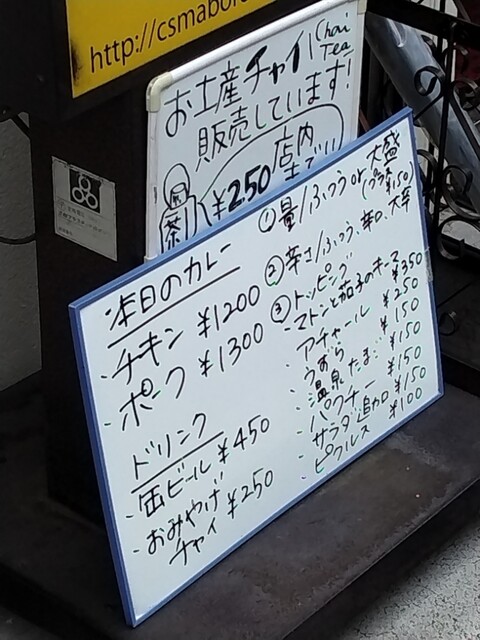 http://csmabore
お土産チャイ(Chai Tea
販売しています!
¥250 店内
まで!!
茶
本日のカレー
・チキン ¥1200
・ポーク ¥1300
ドリンク
・缶ビール ¥450
・おみやげチャイ ¥250
①量/ふつう or 大盛
(プラス¥150)
②辛さ/ふつう、辛口、大辛
③トッピング
・マトンと茄子のキーマ ¥350
・アチャール ¥250
・うずら ¥150
・温泉たまご ¥150
・パクチー ¥150
・サラダ追加 ¥150
・ピクルス ¥100